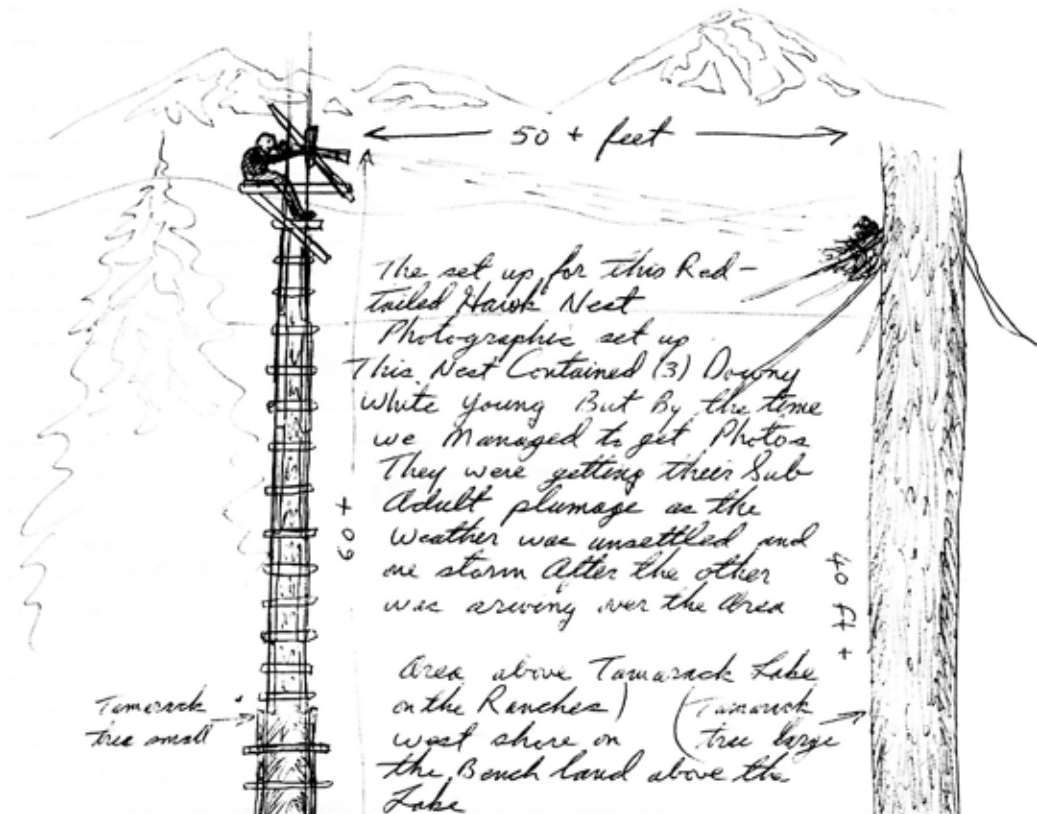 50 + feet
The set up for this Red-
tailed Hawk Nest
Photographic set up
This Nest Contained (3) Downy
White young But By the time
we Managed to get Photos
They were getting their Sub
Adult plumage as the
Weather was unsettled and
one storm After the other
was ariving over the Area
60 +
40 ft +
Area above Tamarack Lake
on the Ranches)
west shore on
the Bench land above the
Lake
Tamarack
tree small
(Tamarack
tree large